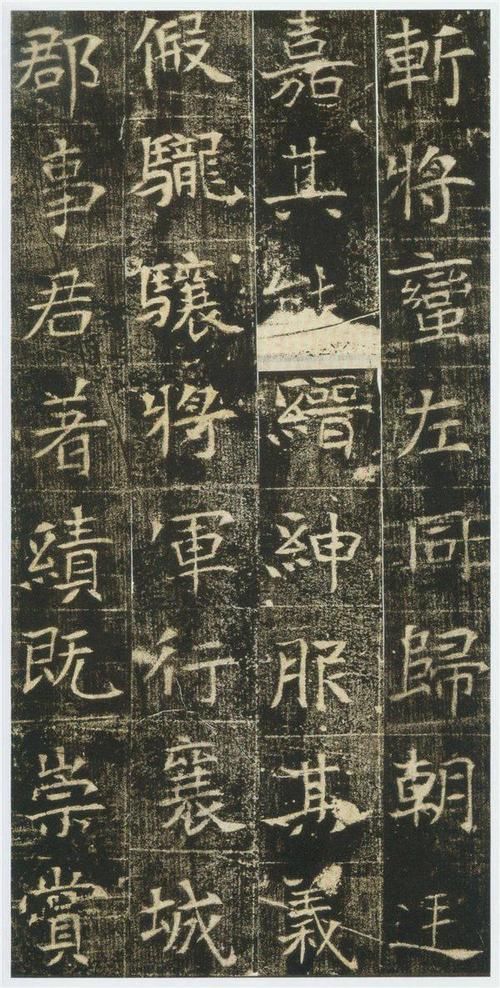 斬將蠻左同歸朝廷
嘉其能縉紳服其義
假䮾驤將軍行襄城
郡事君著績既崇賞